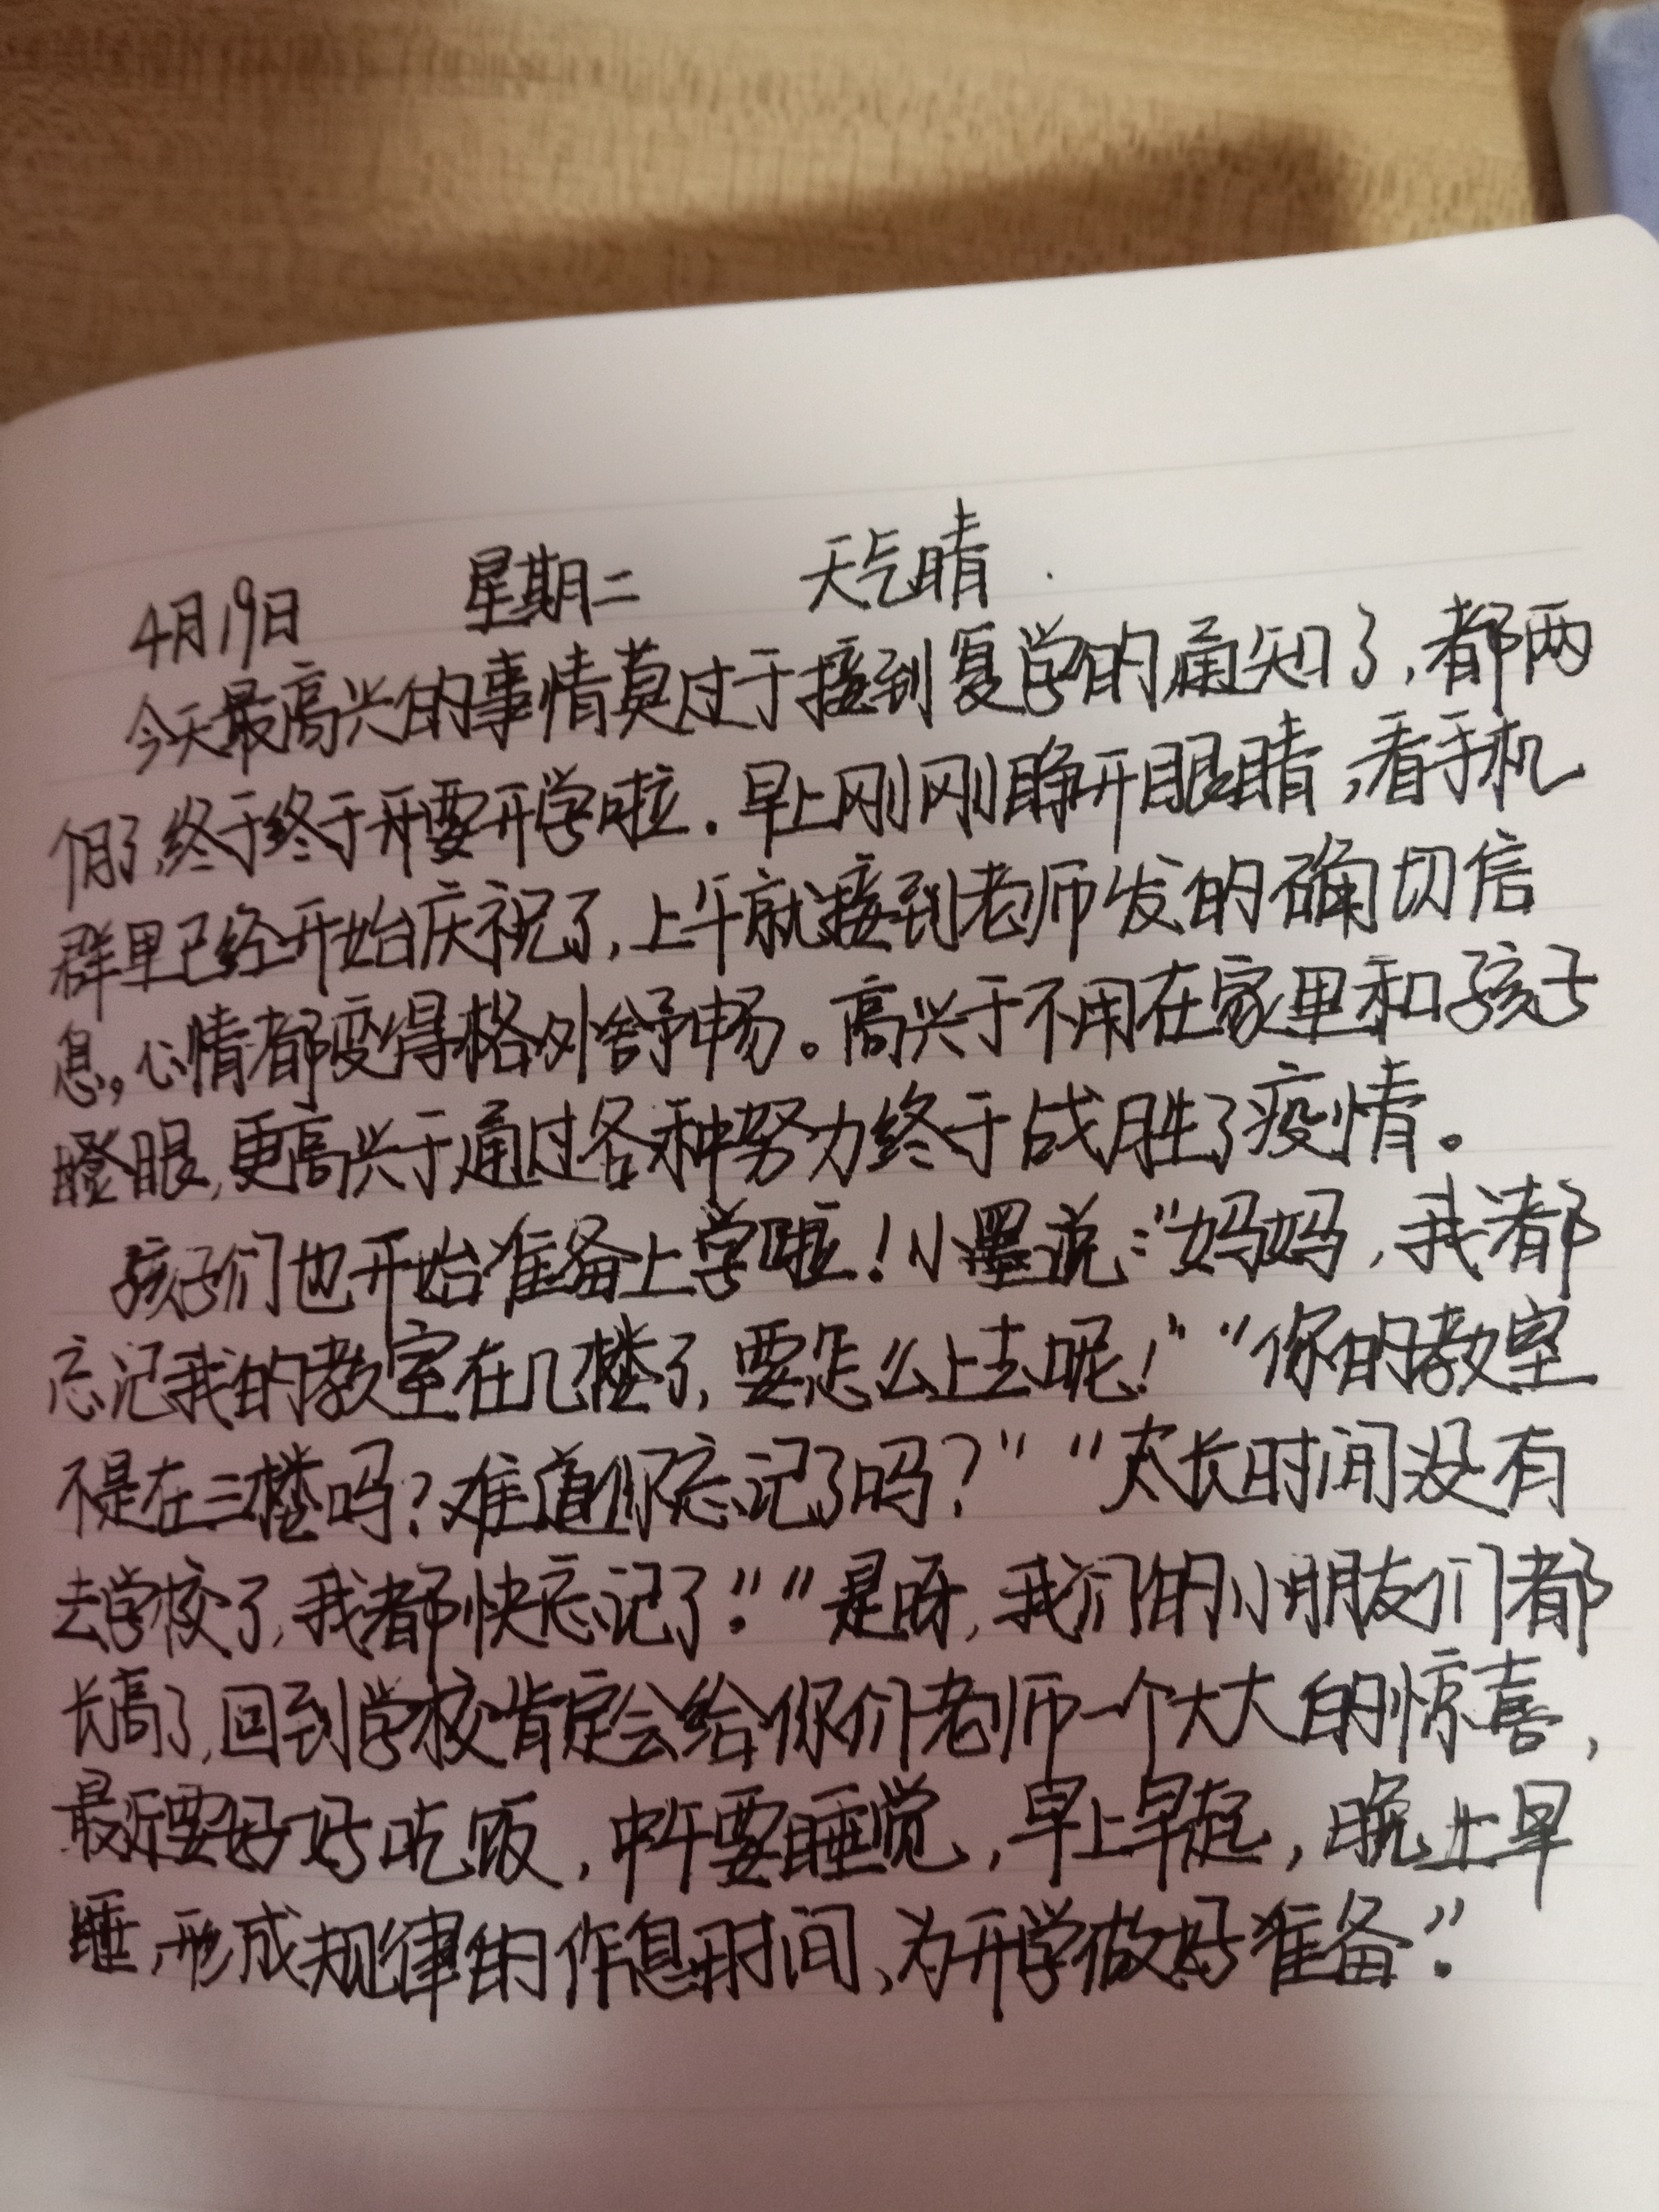 4月19日 星期二 天气晴
今天最高兴的事情莫过于接到复学的通知了,都两
个月了,终于终于要开学啦.早上刚刚睁开眼睛,看手机
群里已经开始庆祝了,上午就接到老师发的确切信
息。心情都变得格外舒畅。高兴于不用在家里和孩子
瞪眼,更高兴于通过各种努力终于战胜了疫情。
孩子们也开始准备上学啦!小墨说:“妈妈,我都
忘记我的教室在几楼了,要怎么上去呢!”“你的教室
不是在三楼吗?难道你忘记了吗?”“太长时间没有
去学校了,我都快忘记了.”“是呀,我们的小朋友们都
长高了,回到学校肯定会给你们老师一个大大的惊喜,
最近要好好吃饭,中午要睡觉,早上早起,晚上早
睡,形成规律的作息时间、为开学做好准备”.